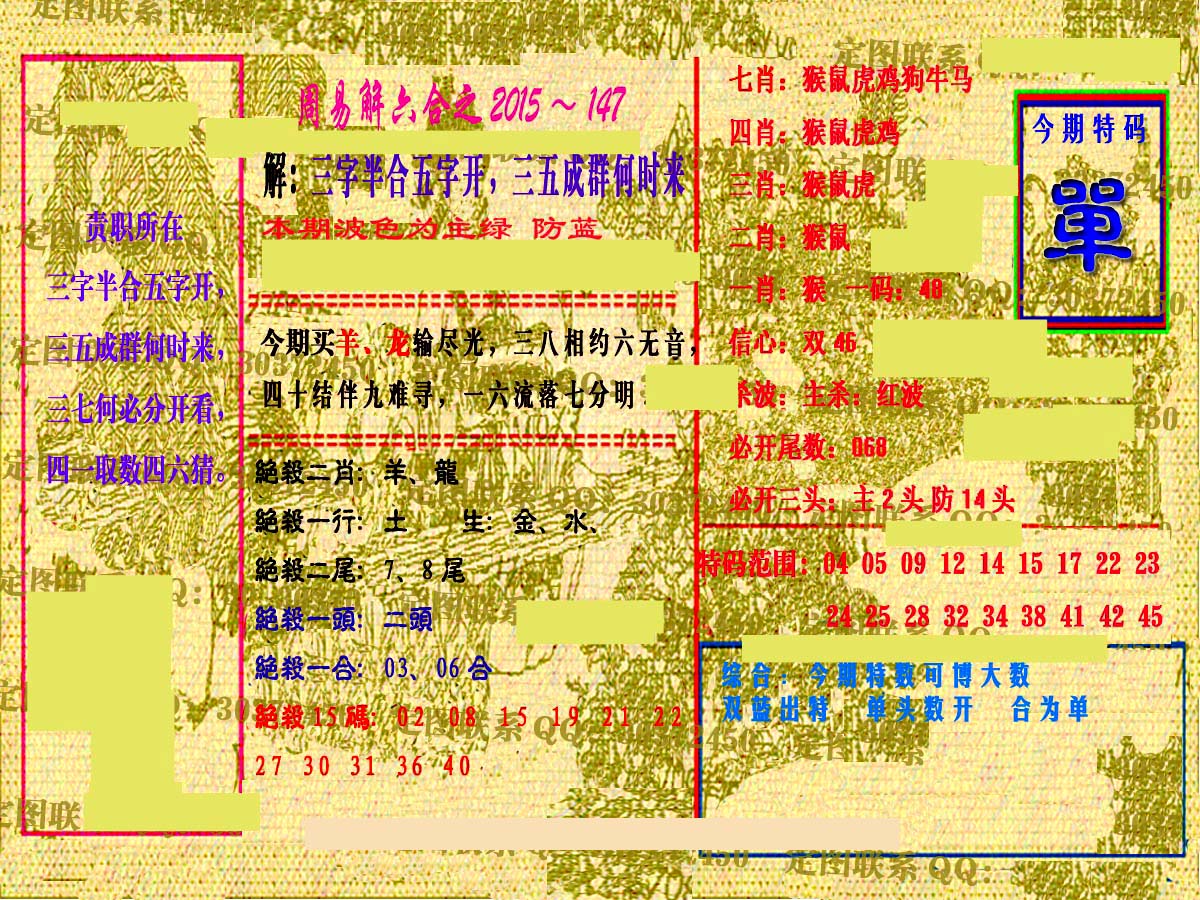 周易解六合之2015～147
责职所在
三字半合五字开，
三五成群何时来，
三七何必分开看，
四一取数四六猜。
解：三字半合五字开，三五成群何时来
本期波色为主绿 防蓝
今期买羊、龙输尽光，三八相约六无音，
四十结伴九难寻，一六流落七分明
絕殺二肖：羊、龍
絕殺一行：土 生：金、水、
絕殺二尾：7、8尾
絕殺一頭：二頭
絕殺一合：03、06合
絕殺15碼：02 08 15 19 21 22
27 30 31 36 40
七肖：猴鼠虎鸡狗牛马
四肖：猴鼠虎鸡
三肖：猴鼠虎
二肖：猴鼠
一肖：猴 一码：48
信心：双46
杀波：主杀：红波
必开尾数：068
必开三头：主2头防14头
今期特码
單
特码范围：04 05 09 12 14 15 17 22 23
24 25 28 32 34 38 41 42 45
综合：今期特数可博大数
双蓝出特．单头数开 合为单
定图联系QQ：